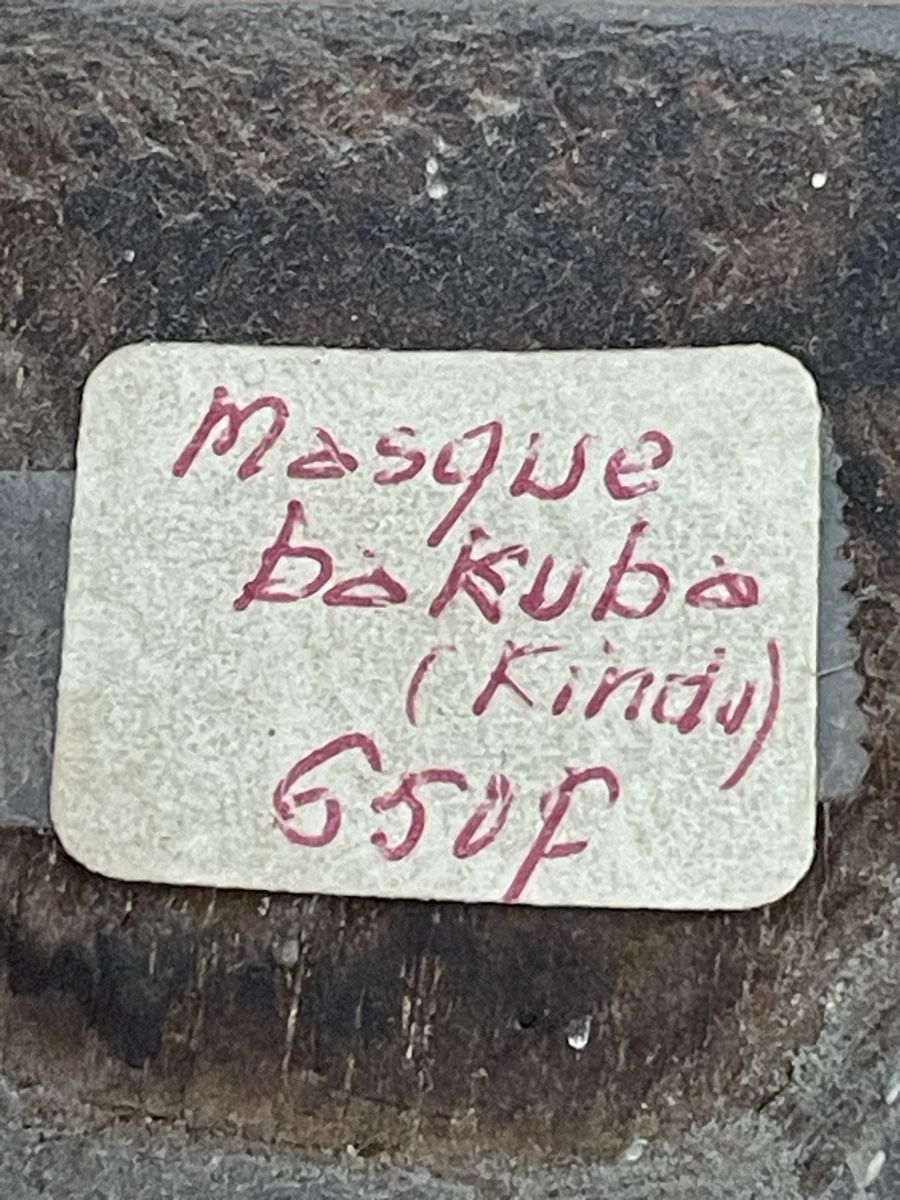 Masque
bakuba
(Kindu)
650f